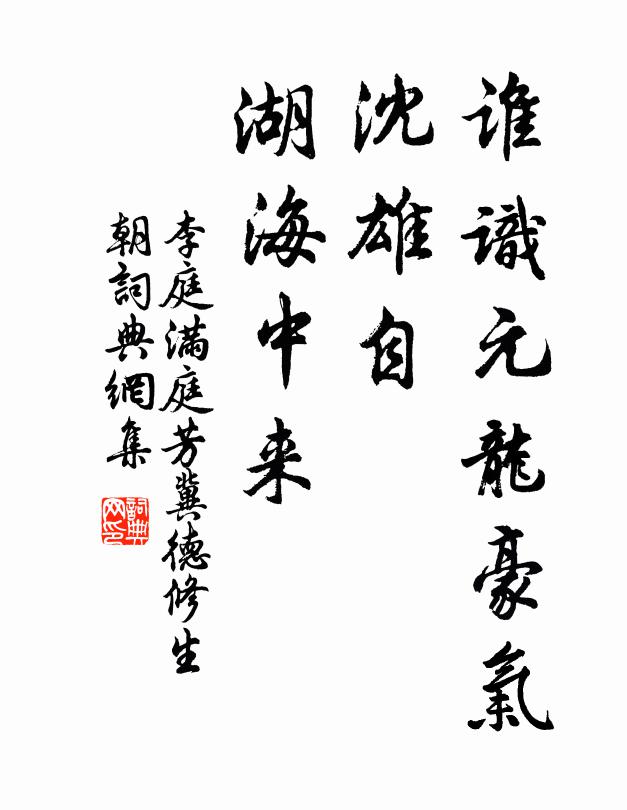 谁識元龍豪氣
沈雄自
湖海中来
李庭滿庭芳冀德修生
朝詞典網集
詞典网印